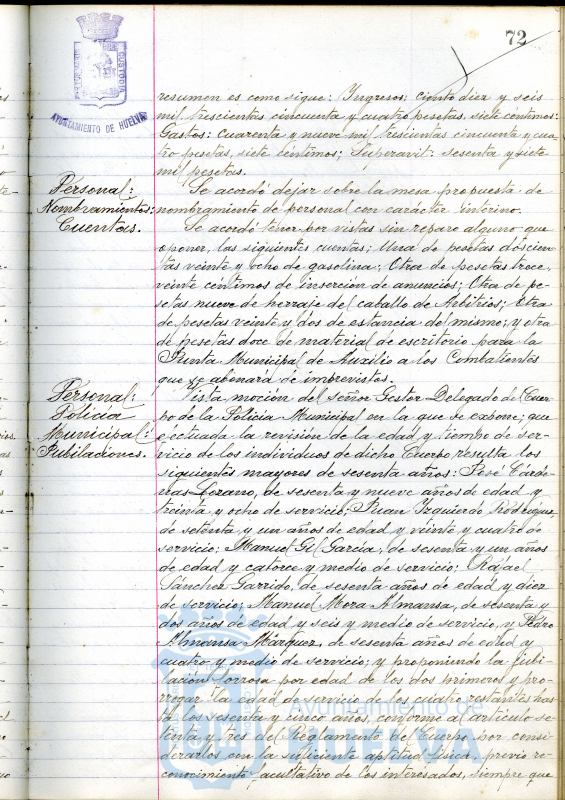 72
PORTUS MARIS
CUSTODIA
AYUNTAMIENTO DE HUELVA
resumen es como sigue: Ingresos: Ciento diez y seis
mil trescientas cincuenta y cuatro pesetas, siete centimos:
Gastos: cuarenta y nueve mil trescientas cincuenta y cua-
tro pesetas, siete céntimos; Superavit: sesenta y siete
mil pesetas.
Personal:
Nombramientos:
Se acordó dejar sobre la mesa propuesta de
nombramiento de personal con carácter interino.
Cuentas.
Se acordó tener por vistas sin reparo alguno que
oponer, las siguientes cuentas: Una de pesetas doscien-
tas veinte y ocho de gasolina; Otra de pesetas trece,
veinte céntimos de inserción de anuncios; Otra de pe-
setas nueve de herraje del caballo de Arbitrios; Otra
de pesetas veinte y dos de estancia del mismo; y otra
de pesetas doce de material de escritorio para la
Junta Municipal de Auxilio a los Combatientes
que se abonará de imprevistos.
Personal:
Policía
Municipal:
Jubilaciones.
Vista moción del señor Gestor Delegado del Cuer-
po de la Policia Municipal en la que se expone; que
efectuada la revisión de la edad y tiempo de ser-
vicio de los individuos de dicho Cuerpo resulta los
siguientes mayores de sesenta años: José Cárde-
nas Lozano, de sesenta y nueve años de edad y
treinta y ocho de servicio; Juan Izquierdo Rodriguez,
de setenta y un años de edad y veinte y cuatro de
servicio; Manuel Gil García, de sesenta y un años
de edad y catorce y medio de servicio; Rafael
Sánchez Garrido, de sesenta años de edad y diez
de servicio; Manuel Mora Almansa, de sesenta y
dos años de edad y seis y medio de servicio, y Pedro
Almansa Márquez, de sesenta años de edad y
cuatro y medio de servicio; y proponiendo la jubi-
lación forzosa por edad de los dos primeros y pro-
rrogar la edad de servicio de los cuatro restantes has-
ta los sesenta y cinco años, conforme al artículo se-
tenta y tres del Reglamento del Cuerpo por consi-
derarlos con la suficiente aptitud física, previo re-
conocimiento facultativo de los interesados, siempre que
Ayuntamiento de
HUELVA